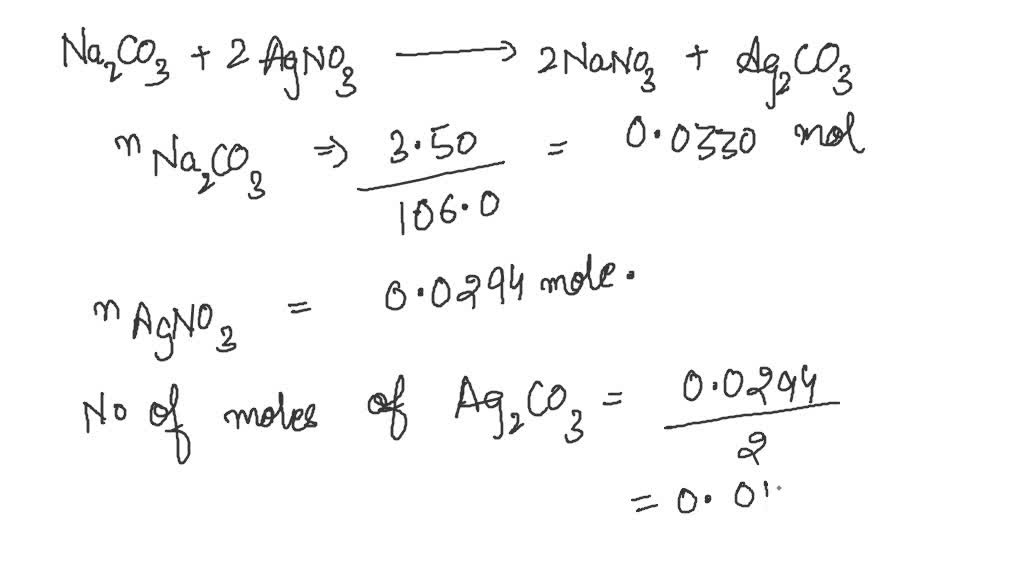 Na₂CO₃ + 2 AgNO₃ ⟶ 2NaNO₃ + Ag₂CO₃
n Na₂CO₃ ⇒ 3.50 / 106.0 = 0.0330 mol
n AgNO₃ = 0.0294 mole.
No of moles of Ag₂CO₃ = 0.0294 / 2
= 0.01